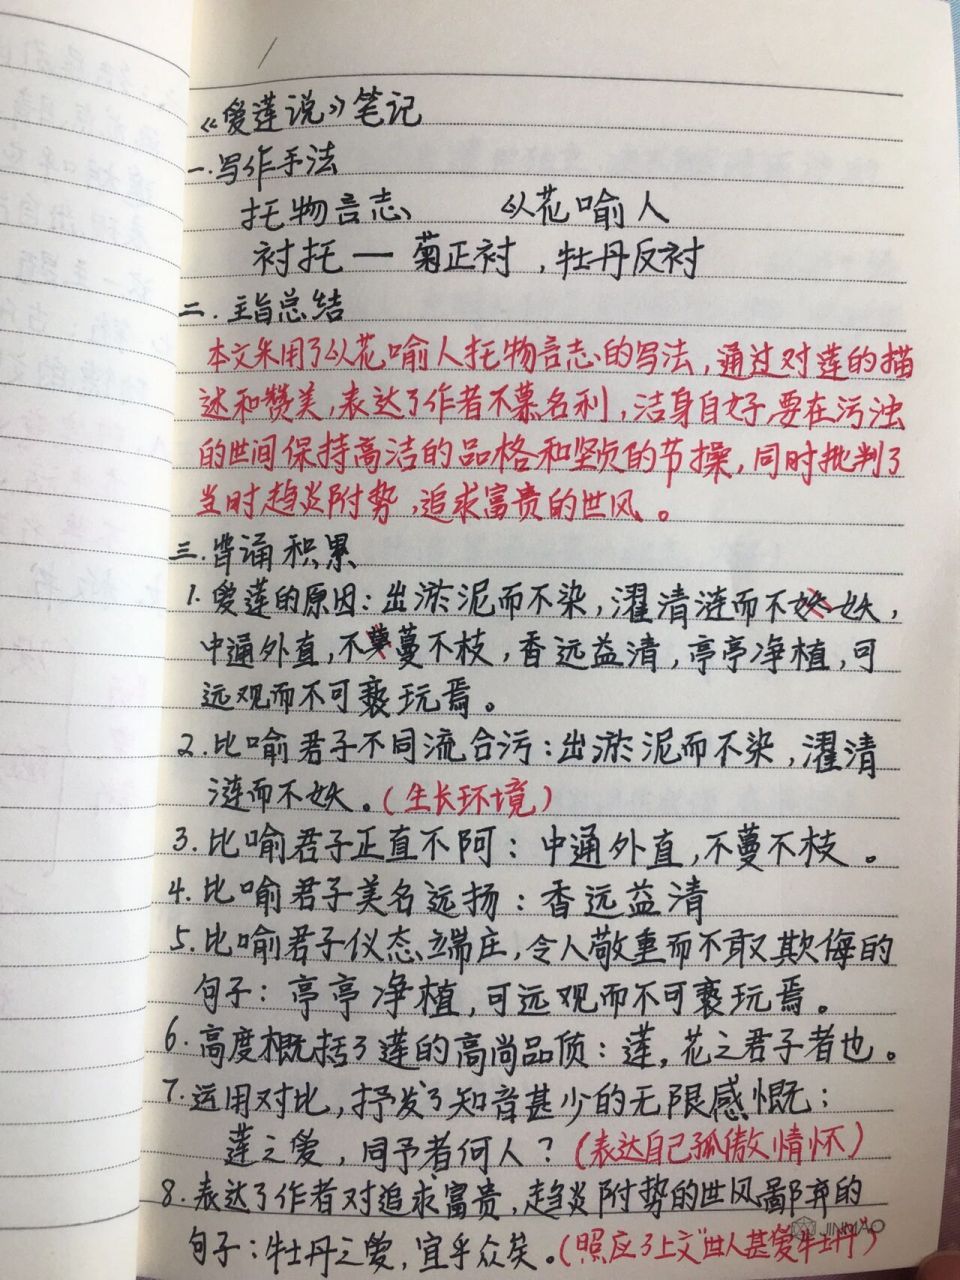 《爱莲说》笔记
一.写作手法
托物言志、 以花喻人
衬托— 菊正衬,牡丹反衬
二.主旨总结
本文采用了以花喻人托物言志的写法,通过对莲的描
述和赞美,表达了作者不慕名利,洁身自好,要在污浊
的世间保持高洁的品格和坚贞的节操,同时批判了
当时趋炎附势,追求富贵的世风。
三.背诵积累
1.爱莲的原因:出淤泥而不染,濯清涟而不妖,
中通外直,不蔓不枝,香远益清,亭亭净植,可
远观而不可亵玩焉。
2.比喻君子不同流合污:出淤泥而不染,濯清
涟而不妖。(生长环境)
3.比喻君子正直不阿:中通外直,不蔓不枝。
4.比喻君子美名远扬:香远益清
5.比喻君子仪态端庄,令人敬重而不敢欺侮的
句子:亭亭净植,可远观而不可亵玩焉。
6.高度概括了莲的高尚品质:莲,花之君子者也。
7.运用对比,抒发了知音甚少的无限感慨:
莲之爱,同予者何人?(表达自己孤傲情怀)
8.表达了作者对追求富贵,趋炎附势的世风鄙弃的
句子:牡丹之爱,宜乎众矣。(照应了上文"世人甚爱牡丹")
JINMAO